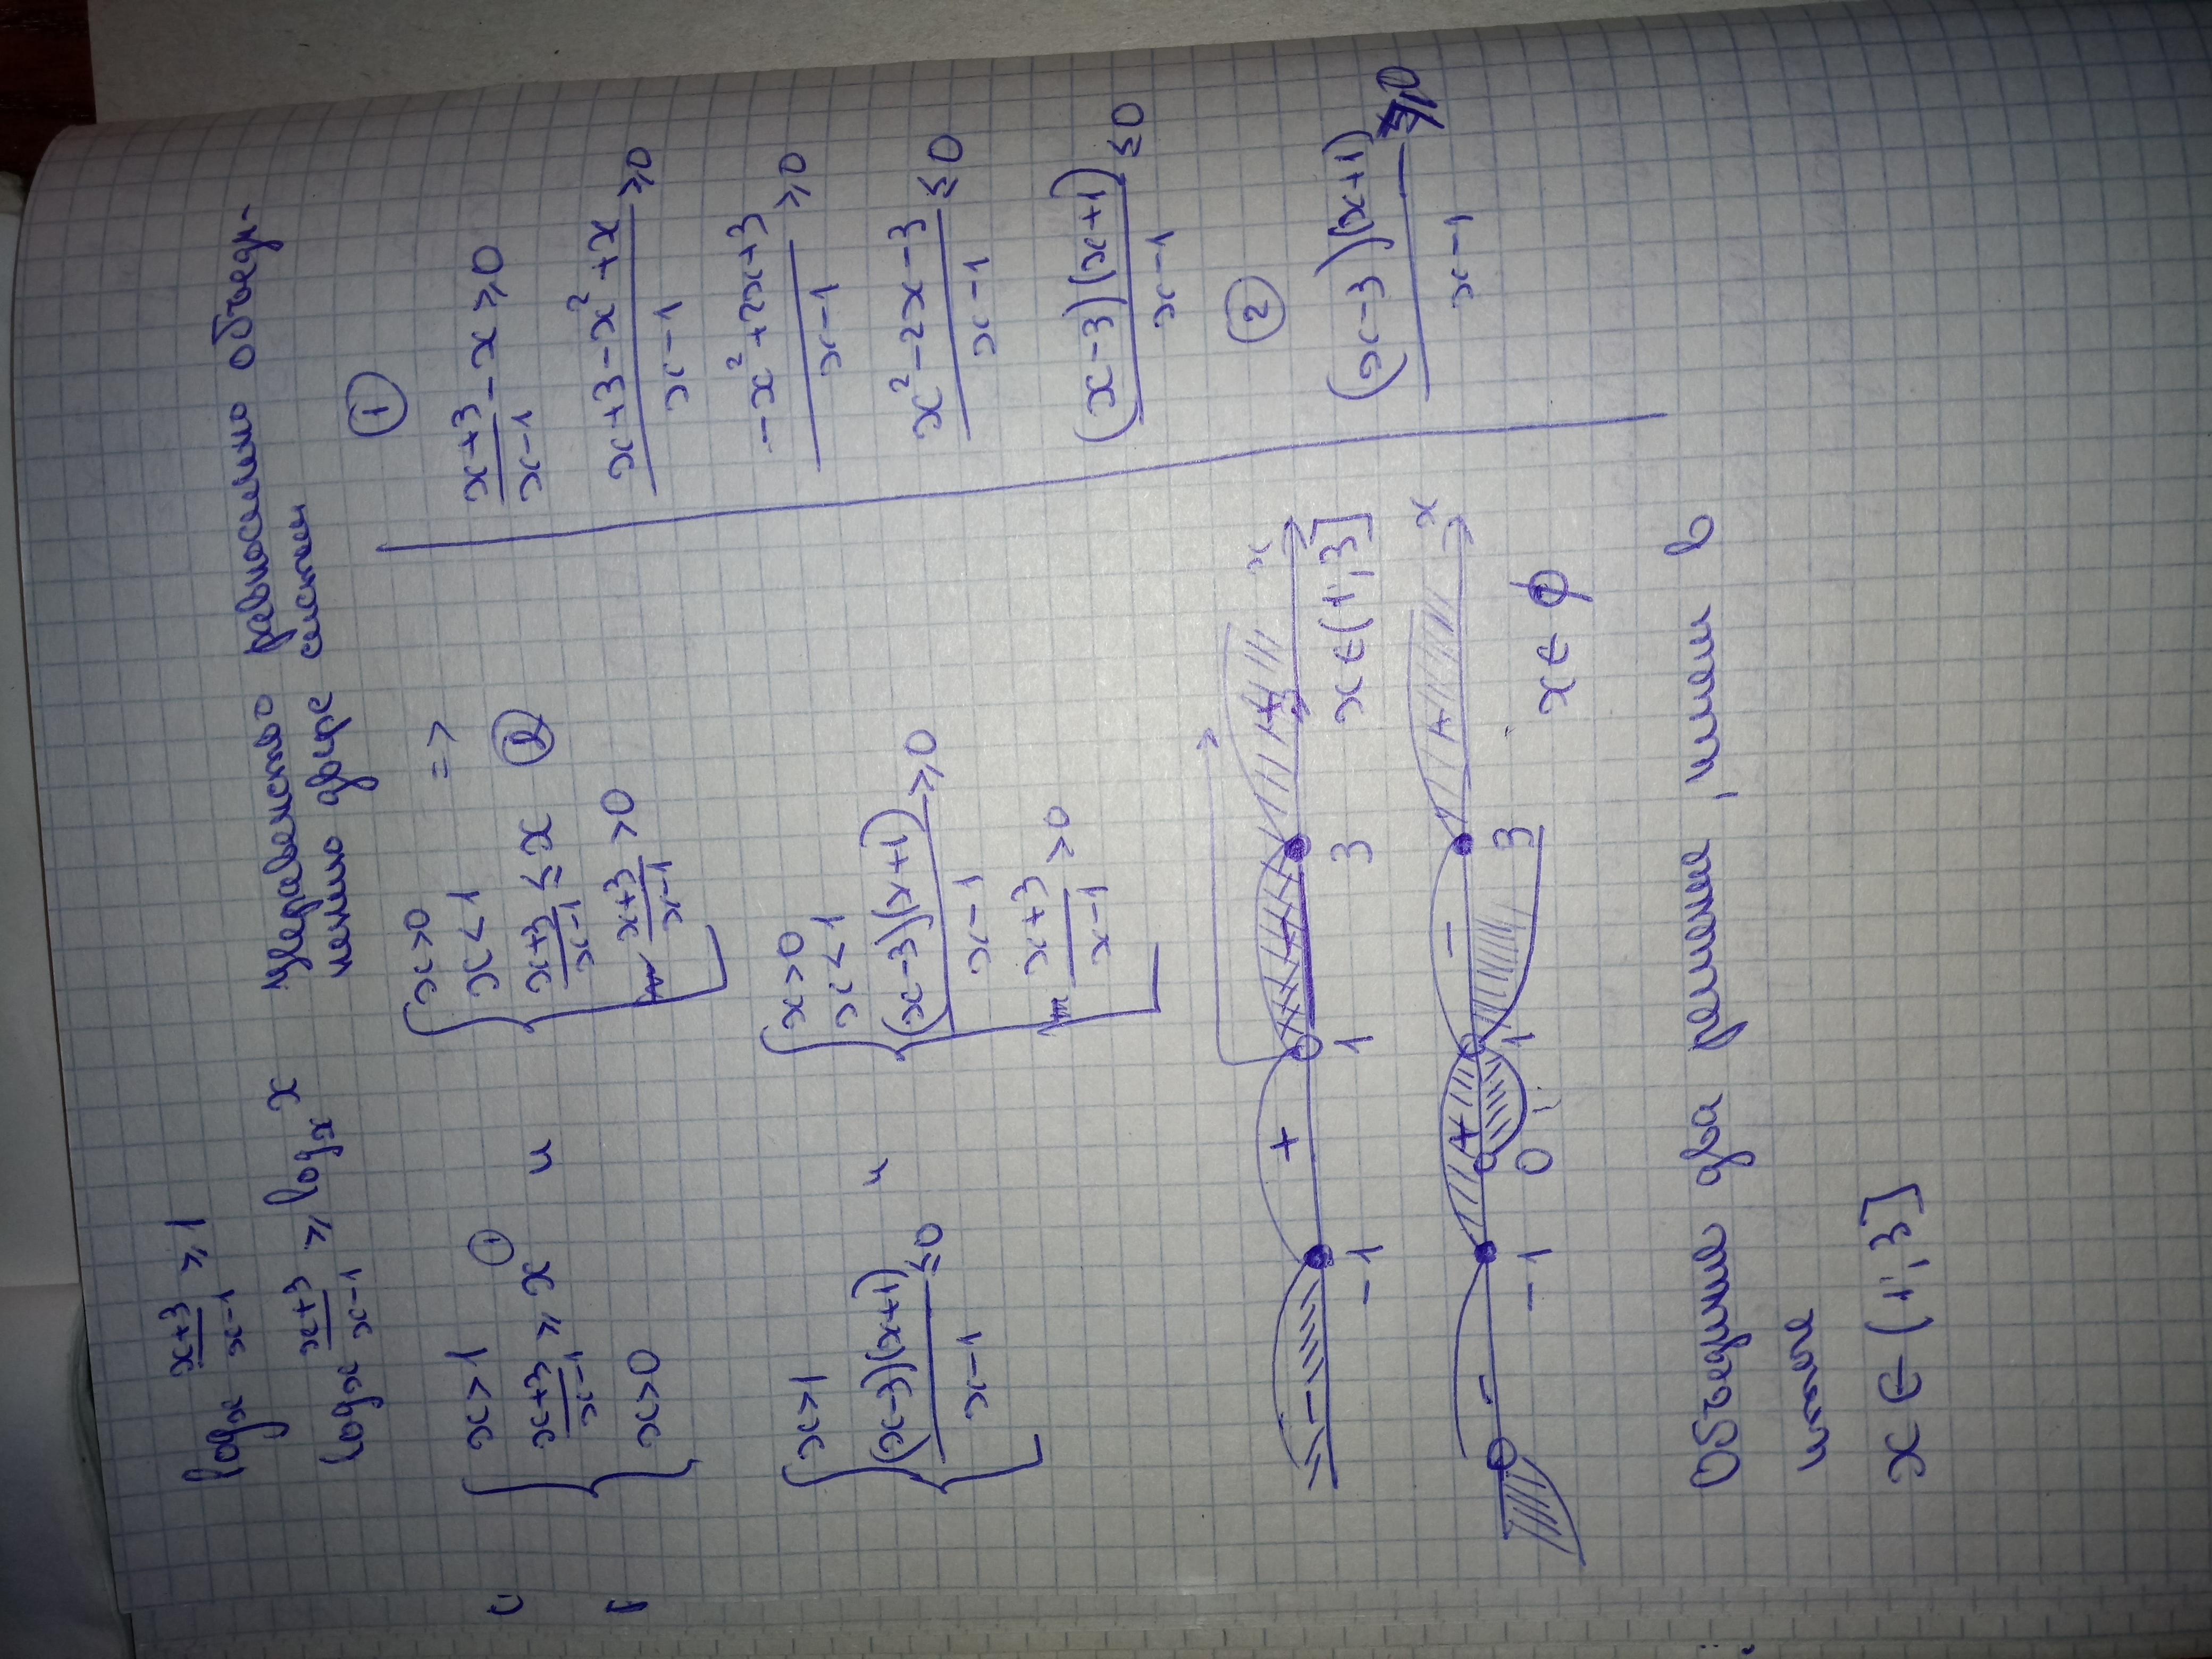 logₓ (x+3)/(x-1) ≥ 1
logₓ (x+3)/(x-1) ≥ logₓ x
Неравенство равносильно объеди-
нению двух систем
{ x>1
(x+3)/(x-1) ≥ x ①
x>0
и
{ x>0
x<1
(x+3)/(x-1) ≤ x ②
(x+3)/(x-1) >0
=>
①
(x+3)/(x-1) - x ≥ 0
(x+3-x²+x)/(x-1) ≥0
(-x²+2x+3)/(x-1) ≥0
(x²-2x-3)/(x-1) ≤ 0
(x-3)(x+1)/(x-1) ≤ 0
②
(x-3)(x+1)/(x-1) ≥0
{ x>1
(x-3)(x+1)/(x-1) ≤0
и
{ x>0
x<1
(x-3)(x+1)/(x-1) ≥0
(x+3)/(x-1) >0
- + - + x
-1 1 3
x∈(1;3]
- + - + x
-1 0 1 3
x∈ ∅
Объединив два решения, имеем в
итоге
x∈(1;3]